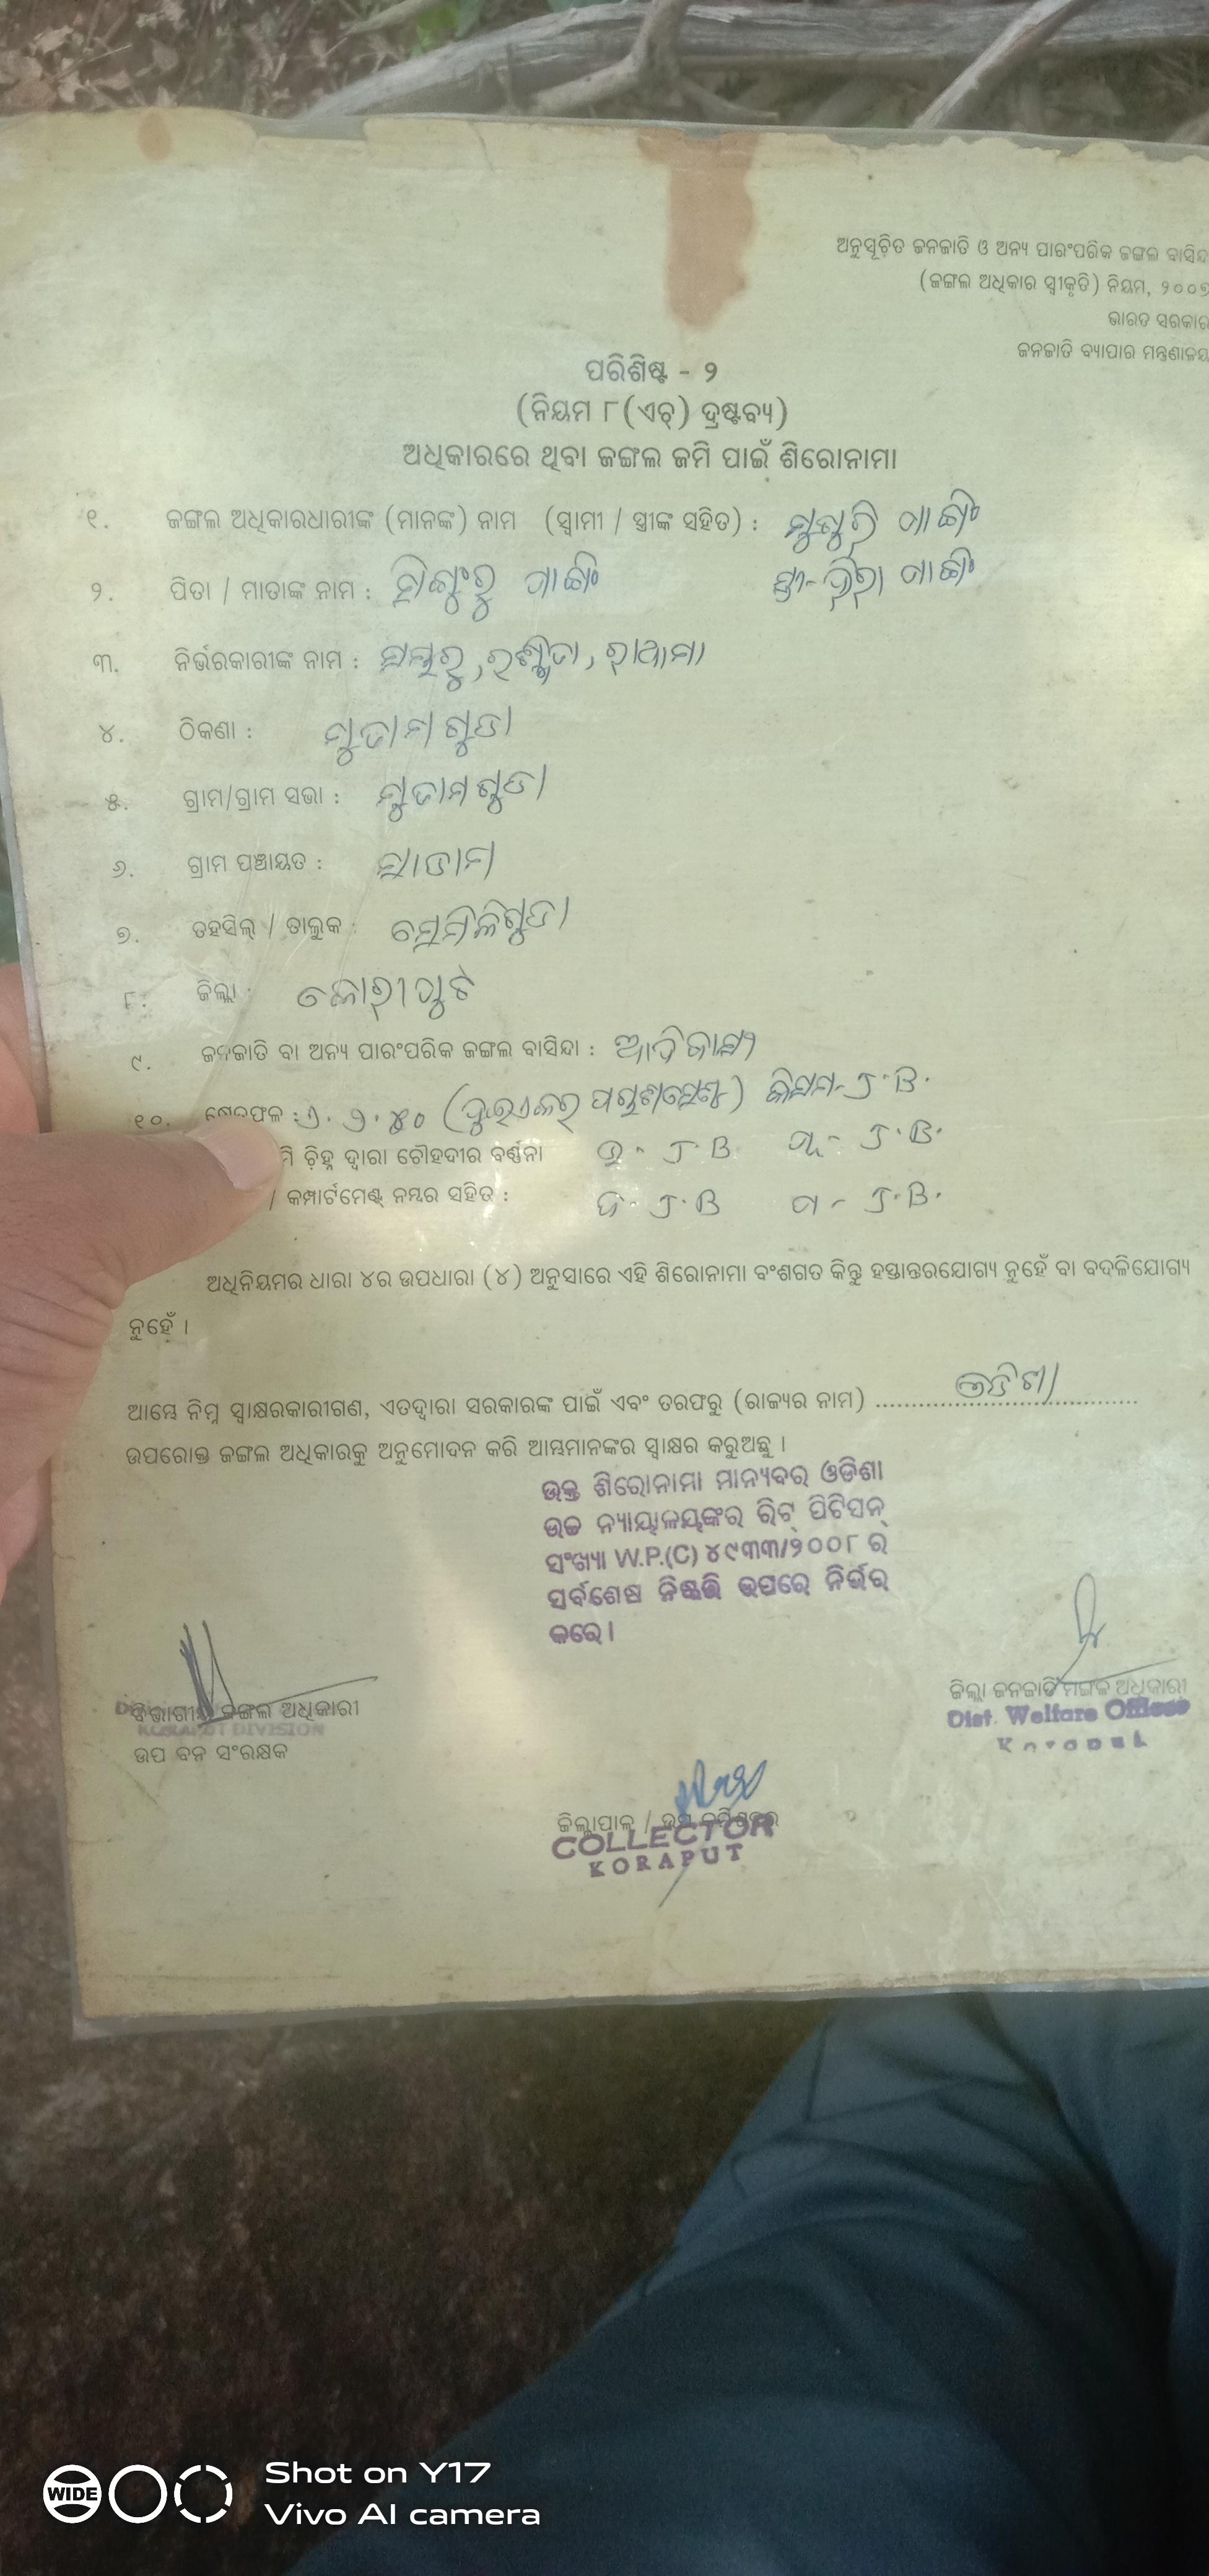 ଅନୁସୂଚିତ ଜନଜାତି ଓ ଅନ୍ୟ ପାରଂପରିକ ଜଙ୍ଗଲ ବାସିନ୍ଦା
(ଜଙ୍ଗଲ ଅଧିକାର ସ୍ୱୀକୃତି) ନିୟମ, ୨୦୦୭
ଭାରତ ସରକାର
ଜନଜାତି ବ୍ୟାପାର ମନ୍ତ୍ରଣାଳୟ
ପରିଶିଷ୍ଟ - ୨
(ନିୟମ ୮(ଏଚ୍) ଦ୍ରଷ୍ଟବ୍ୟ)
ଅଧିକାରରେ ଥିବା ଜଙ୍ଗଲ ଜମି ପାଇଁ ଶିରୋନାମା
୧. ଜଙ୍ଗଲ ଅଧିକାରଧାରୀଙ୍କ (ମାନଙ୍କ) ନାମ (ସ୍ୱାମୀ / ସ୍ତ୍ରୀଙ୍କ ସହିତ) :
୨. ପିତା / ମାତାଙ୍କ ନାମ :
୩. ନିର୍ଭରକାରୀଙ୍କ ନାମ :
୪. ଠିକଣା :
୫. ଗ୍ରାମ/ଗ୍ରାମ ସଭା :
୬. ଗ୍ରାମ ପଞ୍ଚାୟତ :
୭. ତହସିଲ୍ / ତାଲୁକ : ସେମିଳିଗୁଡା
୮. ଜିଲ୍ଲା : କୋରାପୁଟ
୯. ଜନଜାତି ବା ଅନ୍ୟ ପାରଂପରିକ ଜଙ୍ଗଲ ବାସିନ୍ଦା : ଆଦିବାସୀ
୧୦. କ୍ଷେତ୍ରଫଳ : କିସମ- J.B.
ଚିହ୍ନ ଦ୍ୱାରା ଚୌହଦୀର ବର୍ଣ୍ଣନା ଉ - J.B ପୂ - J.B.
/ କମ୍ପାର୍ଟମେଣ୍ଟ୍ ନମ୍ବର ସହିତ : ଦ - J.B ପ - J.B.
ଅଧିନିୟମର ଧାରା ୪ର ଉପଧାରା (୪) ଅନୁସାରେ ଏହି ଶିରୋନାମା ବଂଶଗତ କିନ୍ତୁ ହସ୍ତାନ୍ତରଯୋଗ୍ୟ ନୁହେଁ ବା ବଦଳିଯୋଗ୍ୟ
ନୁହେଁ ।
ଆମ୍ଭେ ନିମ୍ନ ସ୍ୱାକ୍ଷରକାରୀଗଣ, ଏତଦ୍ୱାରା ସରକାରଙ୍କ ପାଇଁ ଏବଂ ତରଫରୁ (ରାଜ୍ୟର ନାମ) ଓଡିଶା
ଉପରୋକ୍ତ ଜଙ୍ଗଲ ଅଧିକାରକୁ ଅନୁମୋଦନ କରି ଆମ୍ଭମାନଙ୍କର ସ୍ୱାକ୍ଷର କରୁଅଛୁ ।
ଉକ୍ତ ଶିରୋନାମା ମାନ୍ୟବର ଓଡିଶା
ଉଚ୍ଚ ନ୍ୟାୟାଳୟଙ୍କର ରିଟ୍ ପିଟିସନ୍
ସଂଖ୍ୟା W.P.(C) ୪୯୩୩/୨୦୦୮ ର
ସର୍ବଶେଷ ନିଷ୍ପତ୍ତି ଉପରେ ନିର୍ଭର
କରେ ।
ବିଭାଗୀୟ ଜଙ୍ଗଲ ଅଧିକାରୀ
KORAPUT DIVISION
ଉପ ବନ ସଂରକ୍ଷକ
ଜିଲ୍ଲା ଜନଜାତି ମଙ୍ଗଳ ଅଧିକାରୀ
Dist. Welfare Officer
Koraput
ଜିଲ୍ଲାପାଳ / ଉପ କମିଶନର
COLLECTOR
KORAPUT
WIDE
Shot on Y17
Vivo AI camera